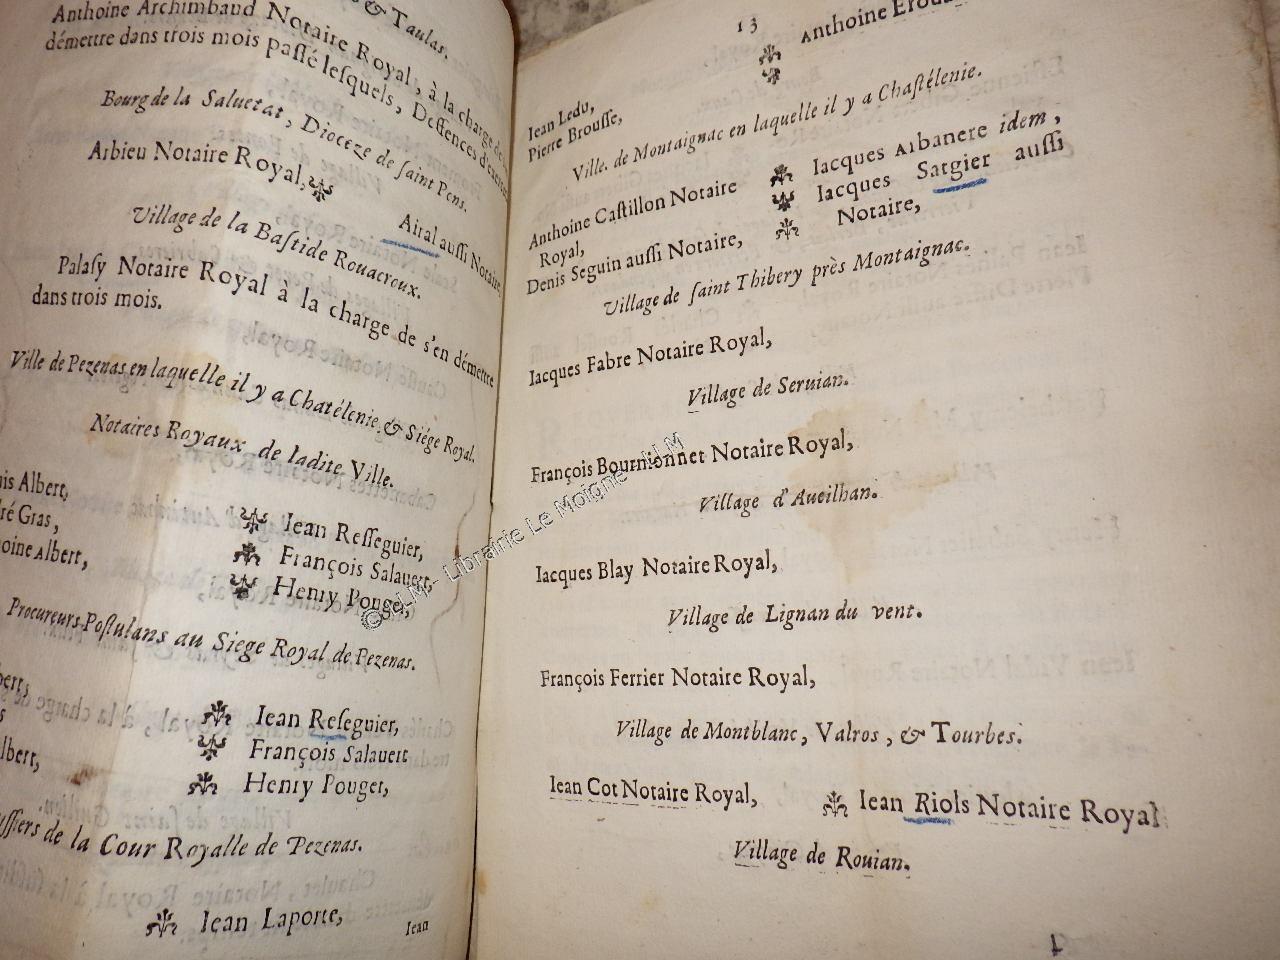 & Taulas.
Anthoine Archimbaud Notaire Royal, à la charge de
démettre dans trois mois passé lesquels, Deffences d'exercer
Bourg de la Saluetat, Dioceze de saint Pons.
Arbieu Notaire Royal,
Airal aussi Notaire
Village de la Bastide Rouacroux.
Palasy Notaire Royal à la charge de s'en démettre
dans trois mois.
Ville de Pezenas en laquelle il y a Chatélenie, & Siége Royal.
Notaires Royaux de ladite Ville.
Albert,
Gras,
Albert,
Iean Resseguier,
François Salauert,
Henry Pouget,
Procureurs Postulans au Siege Royal de Pezenas.
Iean Reseguier,
François Salauert
Henry Pouget,
de la Cour Royalle de Pezenas.
Iean Laporte,
Iean
13
Anthoine
Iean Ledu,
Pierre Brousse,
Ville. de Montaignac en laquelle il y a Chastélenie.
Anthoine Castillon Notaire
Royal,
Denis Seguin aussi Notaire,
Iacques Albanere idem,
Iacques Satgier aussi
Notaire,
Village de saint Thibery près Montaignac.
Iacques Fabre Notaire Royal,
Village de Seruian.
François Bournionnet Notaire Royal,
Village d'Aueilhan.
Iacques Blay Notaire Royal,
Village de Lignan du vent.
François Ferrier Notaire Royal,
Village de Montblanc, Valros, & Tourbes.
Iean Cot Notaire Royal,
Iean Riols Notaire Royal
Village de Rouian.
© JLM - Librairie Le Moigne - JLM